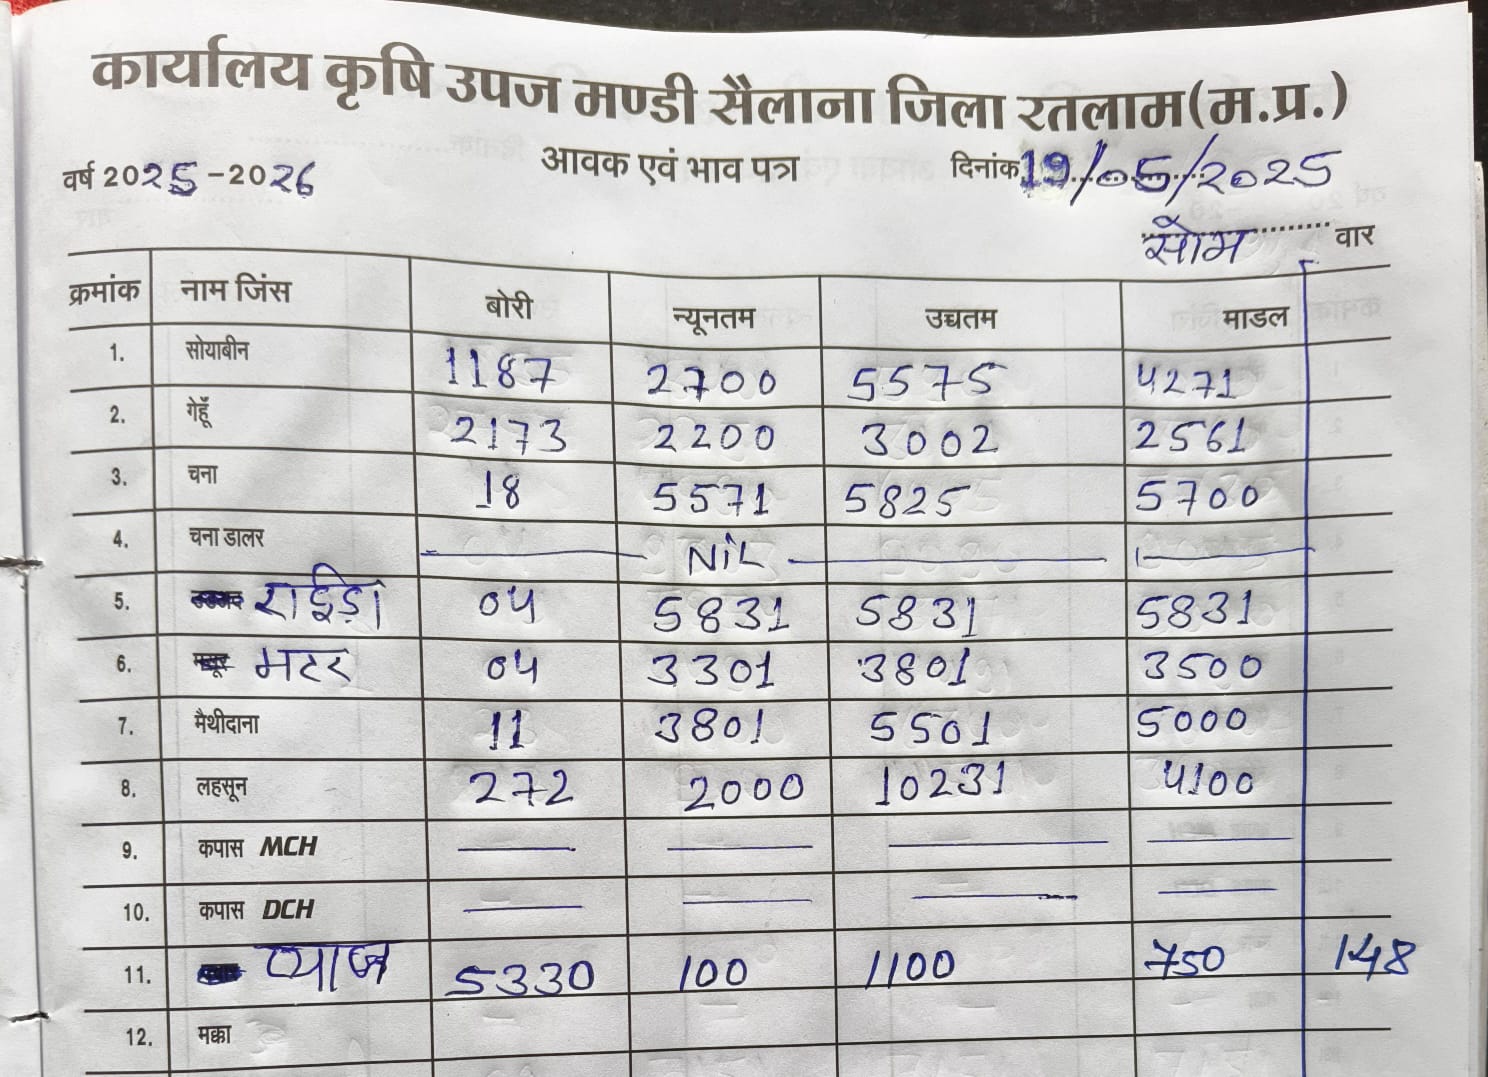 कार्यालय कृषि उपज मण्डी सैलाना जिला रतलाम(म.प्र.)
वर्ष 2025-2026 आवक एवं भाव पत्र दिनांक 19/05/2025
सोम वार
क्रमांक नाम जिंस बोरी न्यूनतम उच्चतम माडल
1. सोयाबीन 1187 2700 5575 4271
2. गेहूँ 2173 2200 3002 2561
3. चना 18 5571 5825 5700
4. चना डालर — NiL — —
5. राईड़ा 04 5831 5831 5831
6. मटर 04 3301 3801 3500
7. मैथीदाना 11 3801 5501 5000
8. लहसून 272 2000 10231 4100
9. कपास MCH — — — —
10. कपास DCH — — — —
11. प्याज 5330 100 1100 750 148
12. मक्का